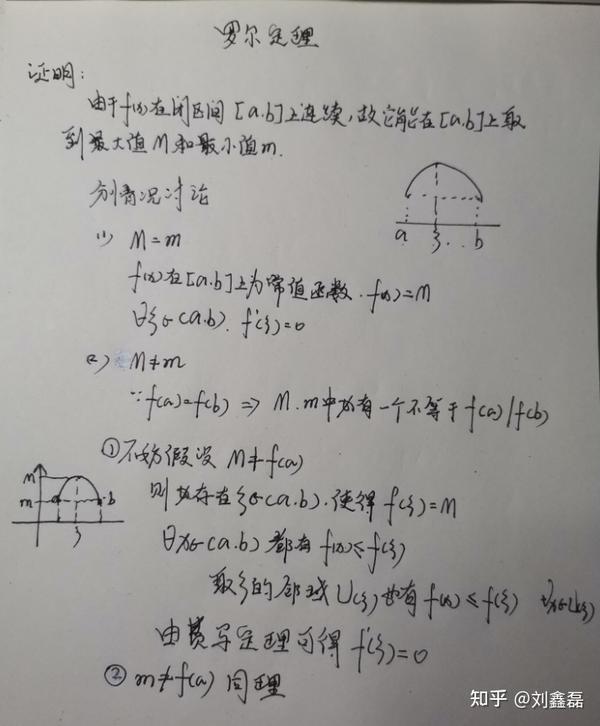 罗尔定理
证明:
由于f(x)在闭区间[a.b]上连续,故它能在[a.b]上取
到最大值M和最小值m.
分情况讨论
a ξ b
(1) M=m
f(x)在[a.b]上为常值函数.f(x)=M
∀ξ∈(a.b). f'(ξ)=0
(2) M≠m
∵f(a)=f(b) ⇒ M.m中必有一个不等于f(a)/f(b)
①不妨假设 M≠f(a)
M
m
a b
ξ
则必存在ξ∈(a.b).使得 f(ξ)=M
∀x∈(a.b) 都有 f(x)≤f(ξ)
取ξ的邻域U(ξ)也有 f(x)≤f(ξ) ∀x∈U(ξ)
由费马定理可得 f'(ξ)=0
②m≠f(a) 同理
知乎 @刘鑫磊